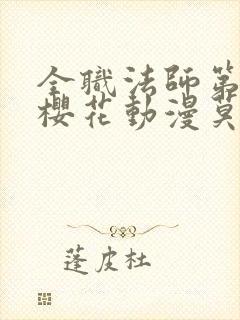 全職法師第
櫻花動漫莫
蓬皮杜